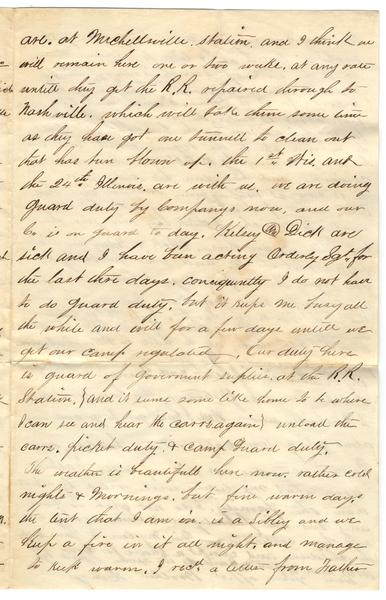 are. at Mechellville. station and I think we
will remain here one or two weeks, at any rate
untill they get the R.R. repaired through to
Nashville. which will take them some time
as they have got one tunnell to clean out
that has bun blown up. the 1st Wis. and
the 24th Illinois. are with us. we are doing
Guard duty by Companys now, and our
Co is on guard to day. Kelsey & Dick are
sick and I have bun acting Orderly Sgt. for
the last thre days. consequntly I do not have
to do guard duty. but it keeps me busy all
the while and will for a few days untill we
get our camp regulated. Our duty here
is guard of Goverment supplies. at the R.R.
Station. {and it seems some like home to be where
I can see and hear the carrs again} unload the
carrs. picket duty. & camp Guard duty.
The weather is beautifull here now. rather cold
nights & Mornings. but fine warm days
the tent that I am in. is a Sibley and we
keep a fire in it all night. and manage
to keep warm. I recd. a letter from Father